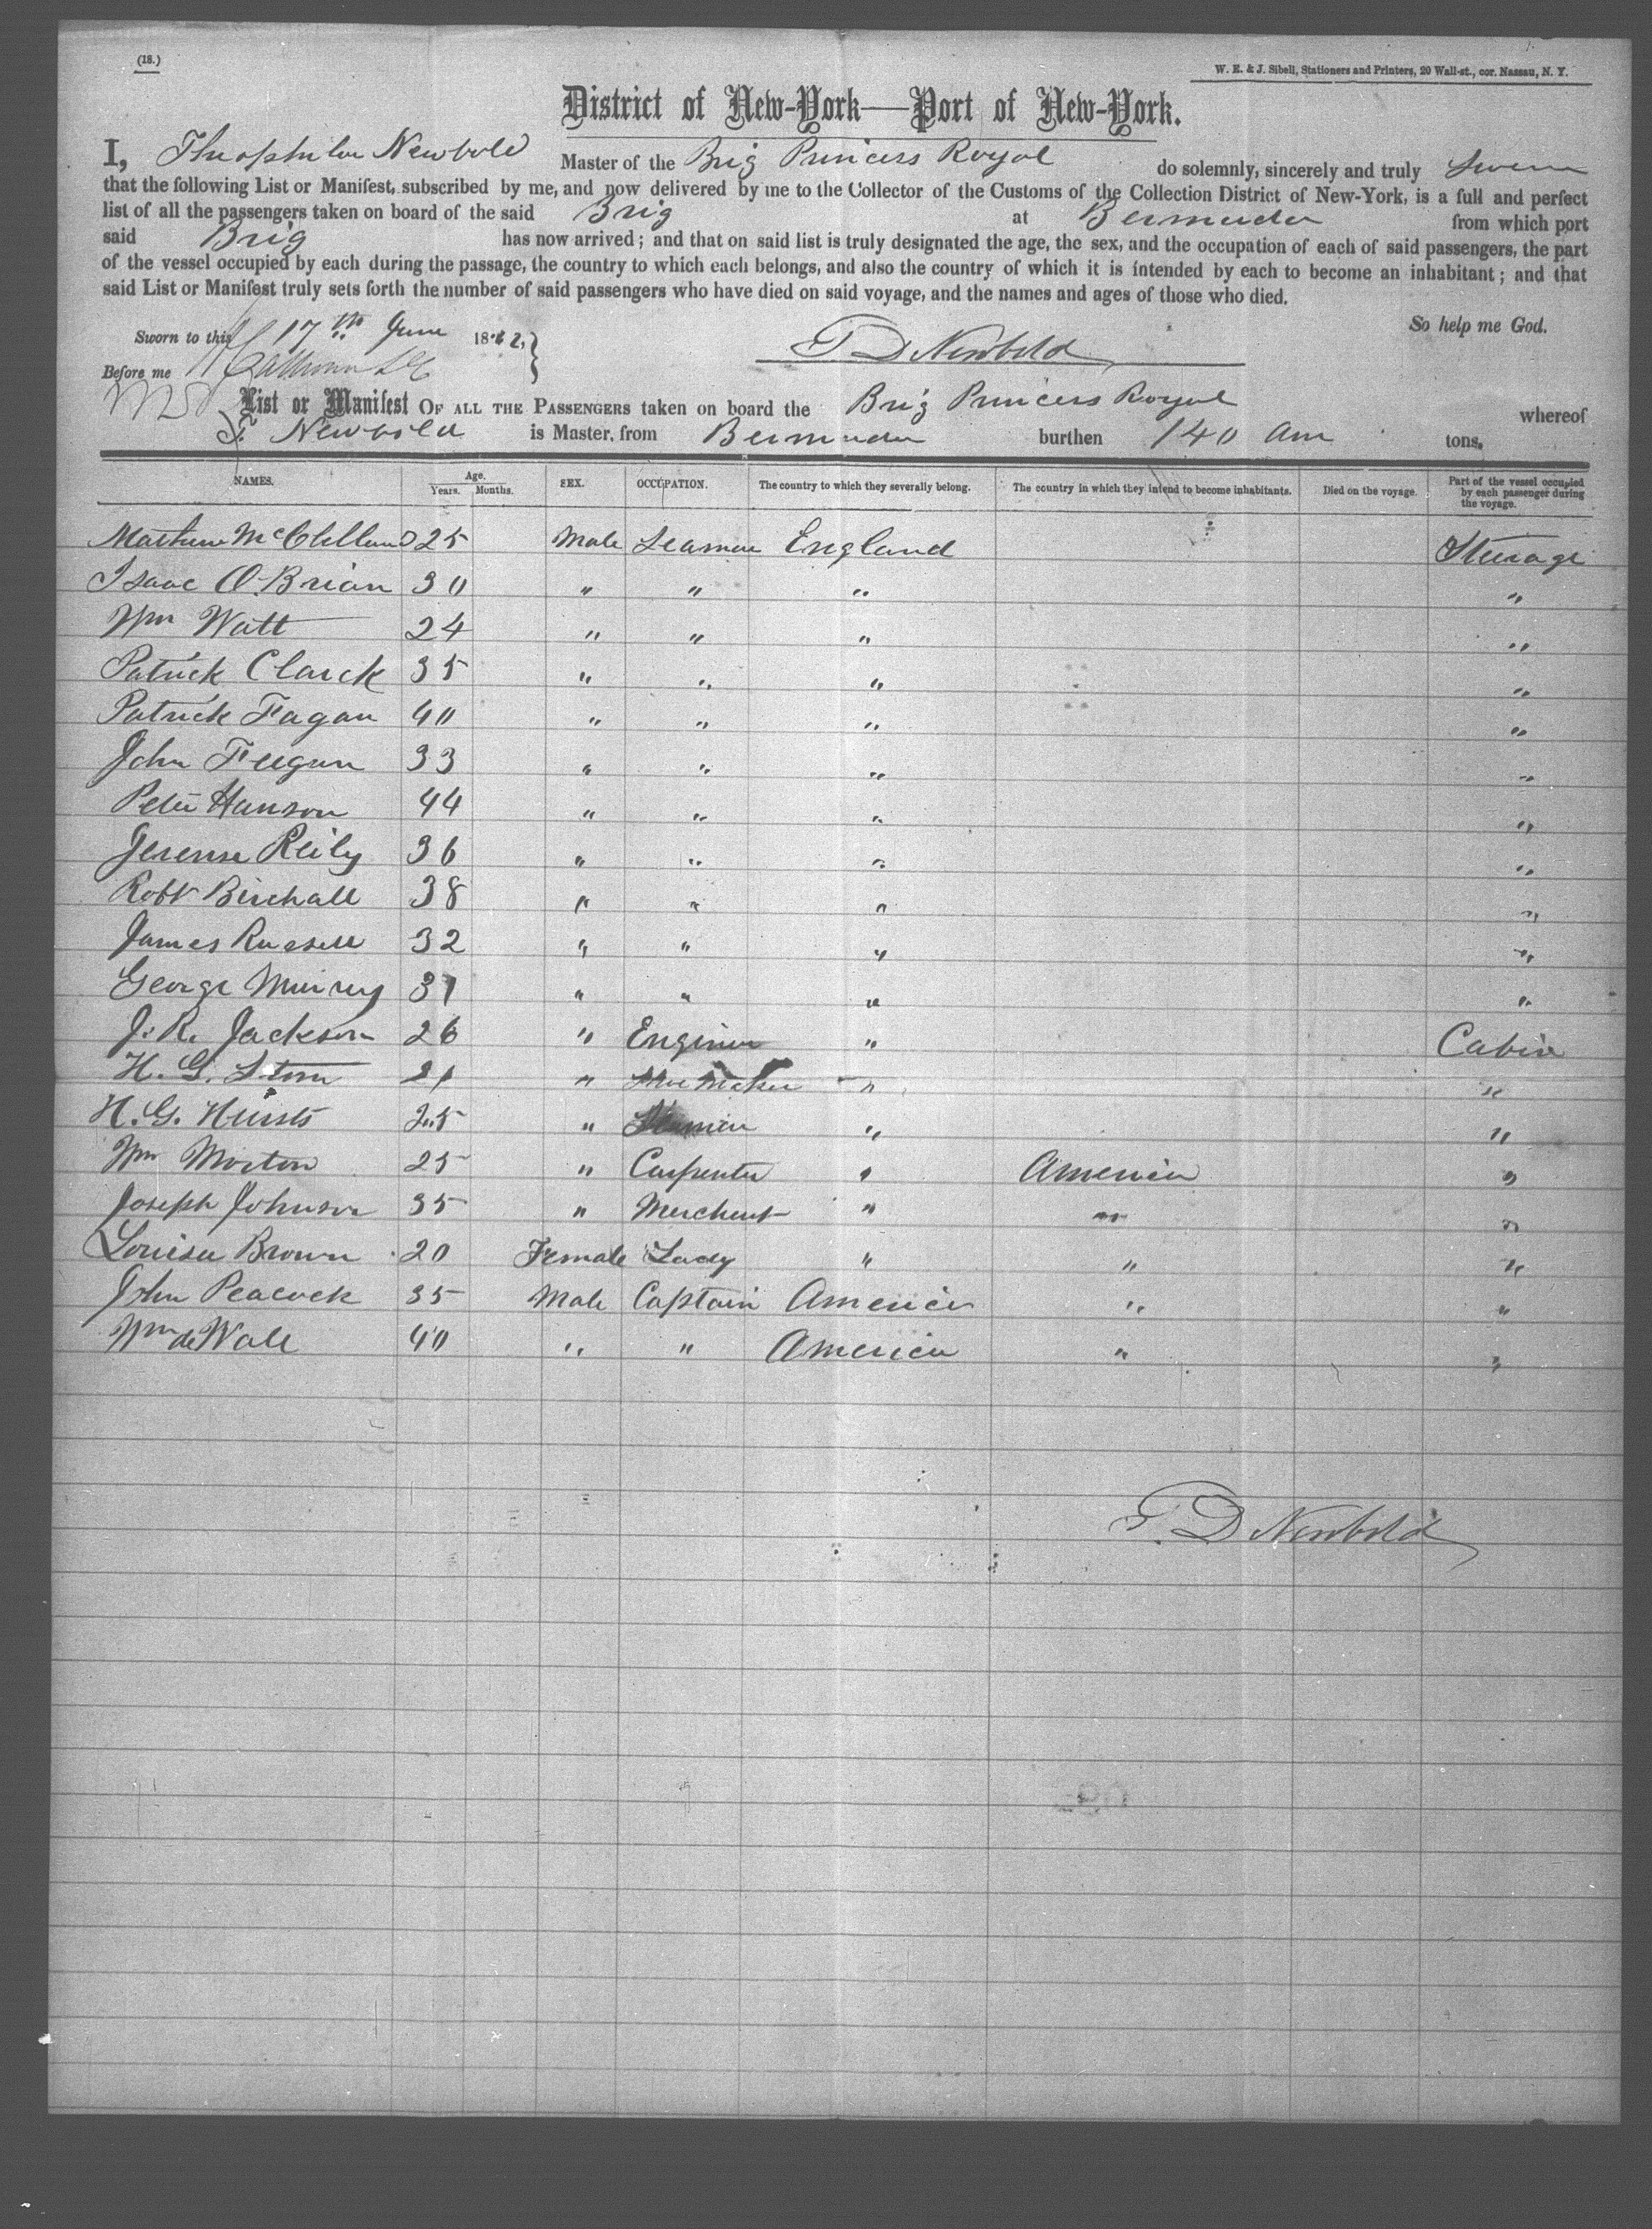 (18.)
W. E. & J. Sibell, Stationers and Printers, 20 Wall-st., cor. Nassau, N. Y.
District of New-York—Port of New-York.
I, Theophilus Newbold Master of the Brig Princess Royal do solemnly, sincerely and truly Swear
that the following List or Manifest, subscribed by me, and now delivered by me to the Collector of the Customs of the Collection District of New-York, is a full and perfect
list of all the passengers taken on board of the said Brig at Bermuda from which port
said Brig has now arrived; and that on said list is truly designated the age, the sex, and the occupation of each of said passengers, the part
of the vessel occupied by each during the passage, the country to which each belongs, and also the country of which it is intended by each to become an inhabitant; and that
said List or Manifest truly sets forth the number of said passengers who have died on said voyage, and the names and ages of those who died.
So help me God.
Sworn to this 17th June 1862,
T D Newbold
Before me
List or Manifest OF ALL THE PASSENGERS taken on board the Brig Princess Royal whereof
T. Newbold is Master, from Bermuda burthen 140 Am tons.
NAMES. Age. Years. Months. SEX. OCCUPATION. The country to which they severally belong. The country in which they intend to become inhabitants. Died on the voyage. Part of the vessel occupied by each passenger during the voyage.
Mathew McClelland 25 Male Seaman England Steerage
Isaac O.Brian 30 " " " "
Wm Watt 24 " " " "
Patrick Clarck 35 " " " "
Patrick Fagan 40 " " " "
John Feegan 33 " " " "
Peter Hanson 44 " " " "
Jerense Reily 36 " " " "
Robt Birchall 38 " " " "
James Russell 32 " " " "
George Murray 31 " " " "
J. R. Jackson 26 " Enginer " Cabin
H. G. Storn 21 " Shoemaker " "
H. G. 25 " Seaman " "
Wm Morton 25 " Carpenter " America "
Joseph Johnson 35 " Merchant " " "
Louisa Brown 20 Female Lady " " "
John Peacock 35 Male Captain America " "
Wm de Wale 40 " " America " "
T. D Newbold